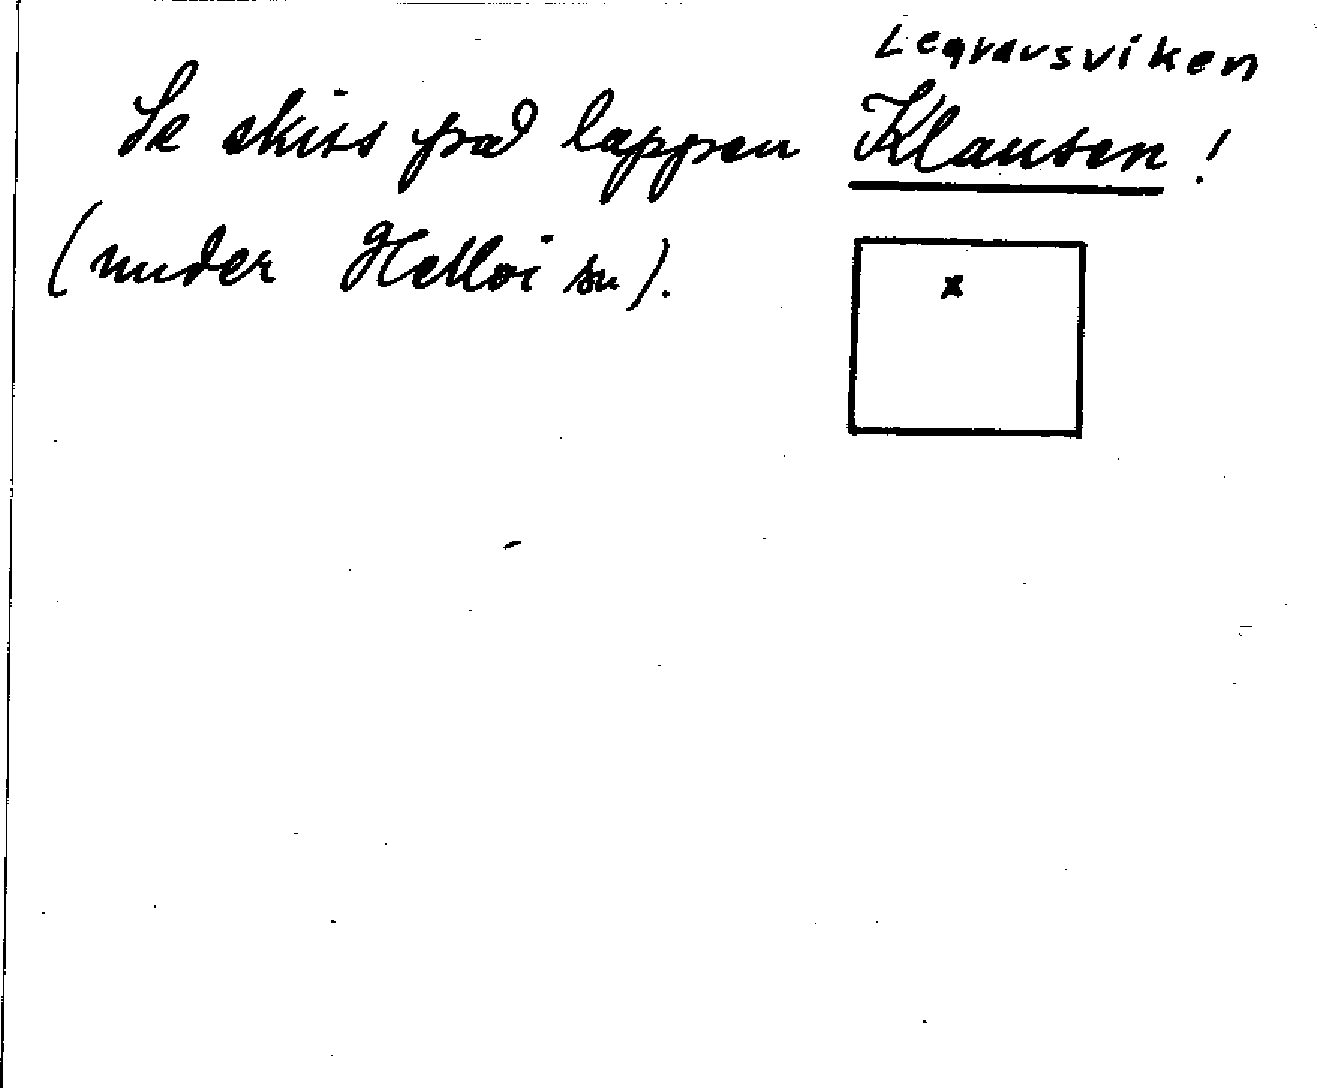 Legravsviken
Se skiss på lappen Klausen!
(under Helløi sn).
x